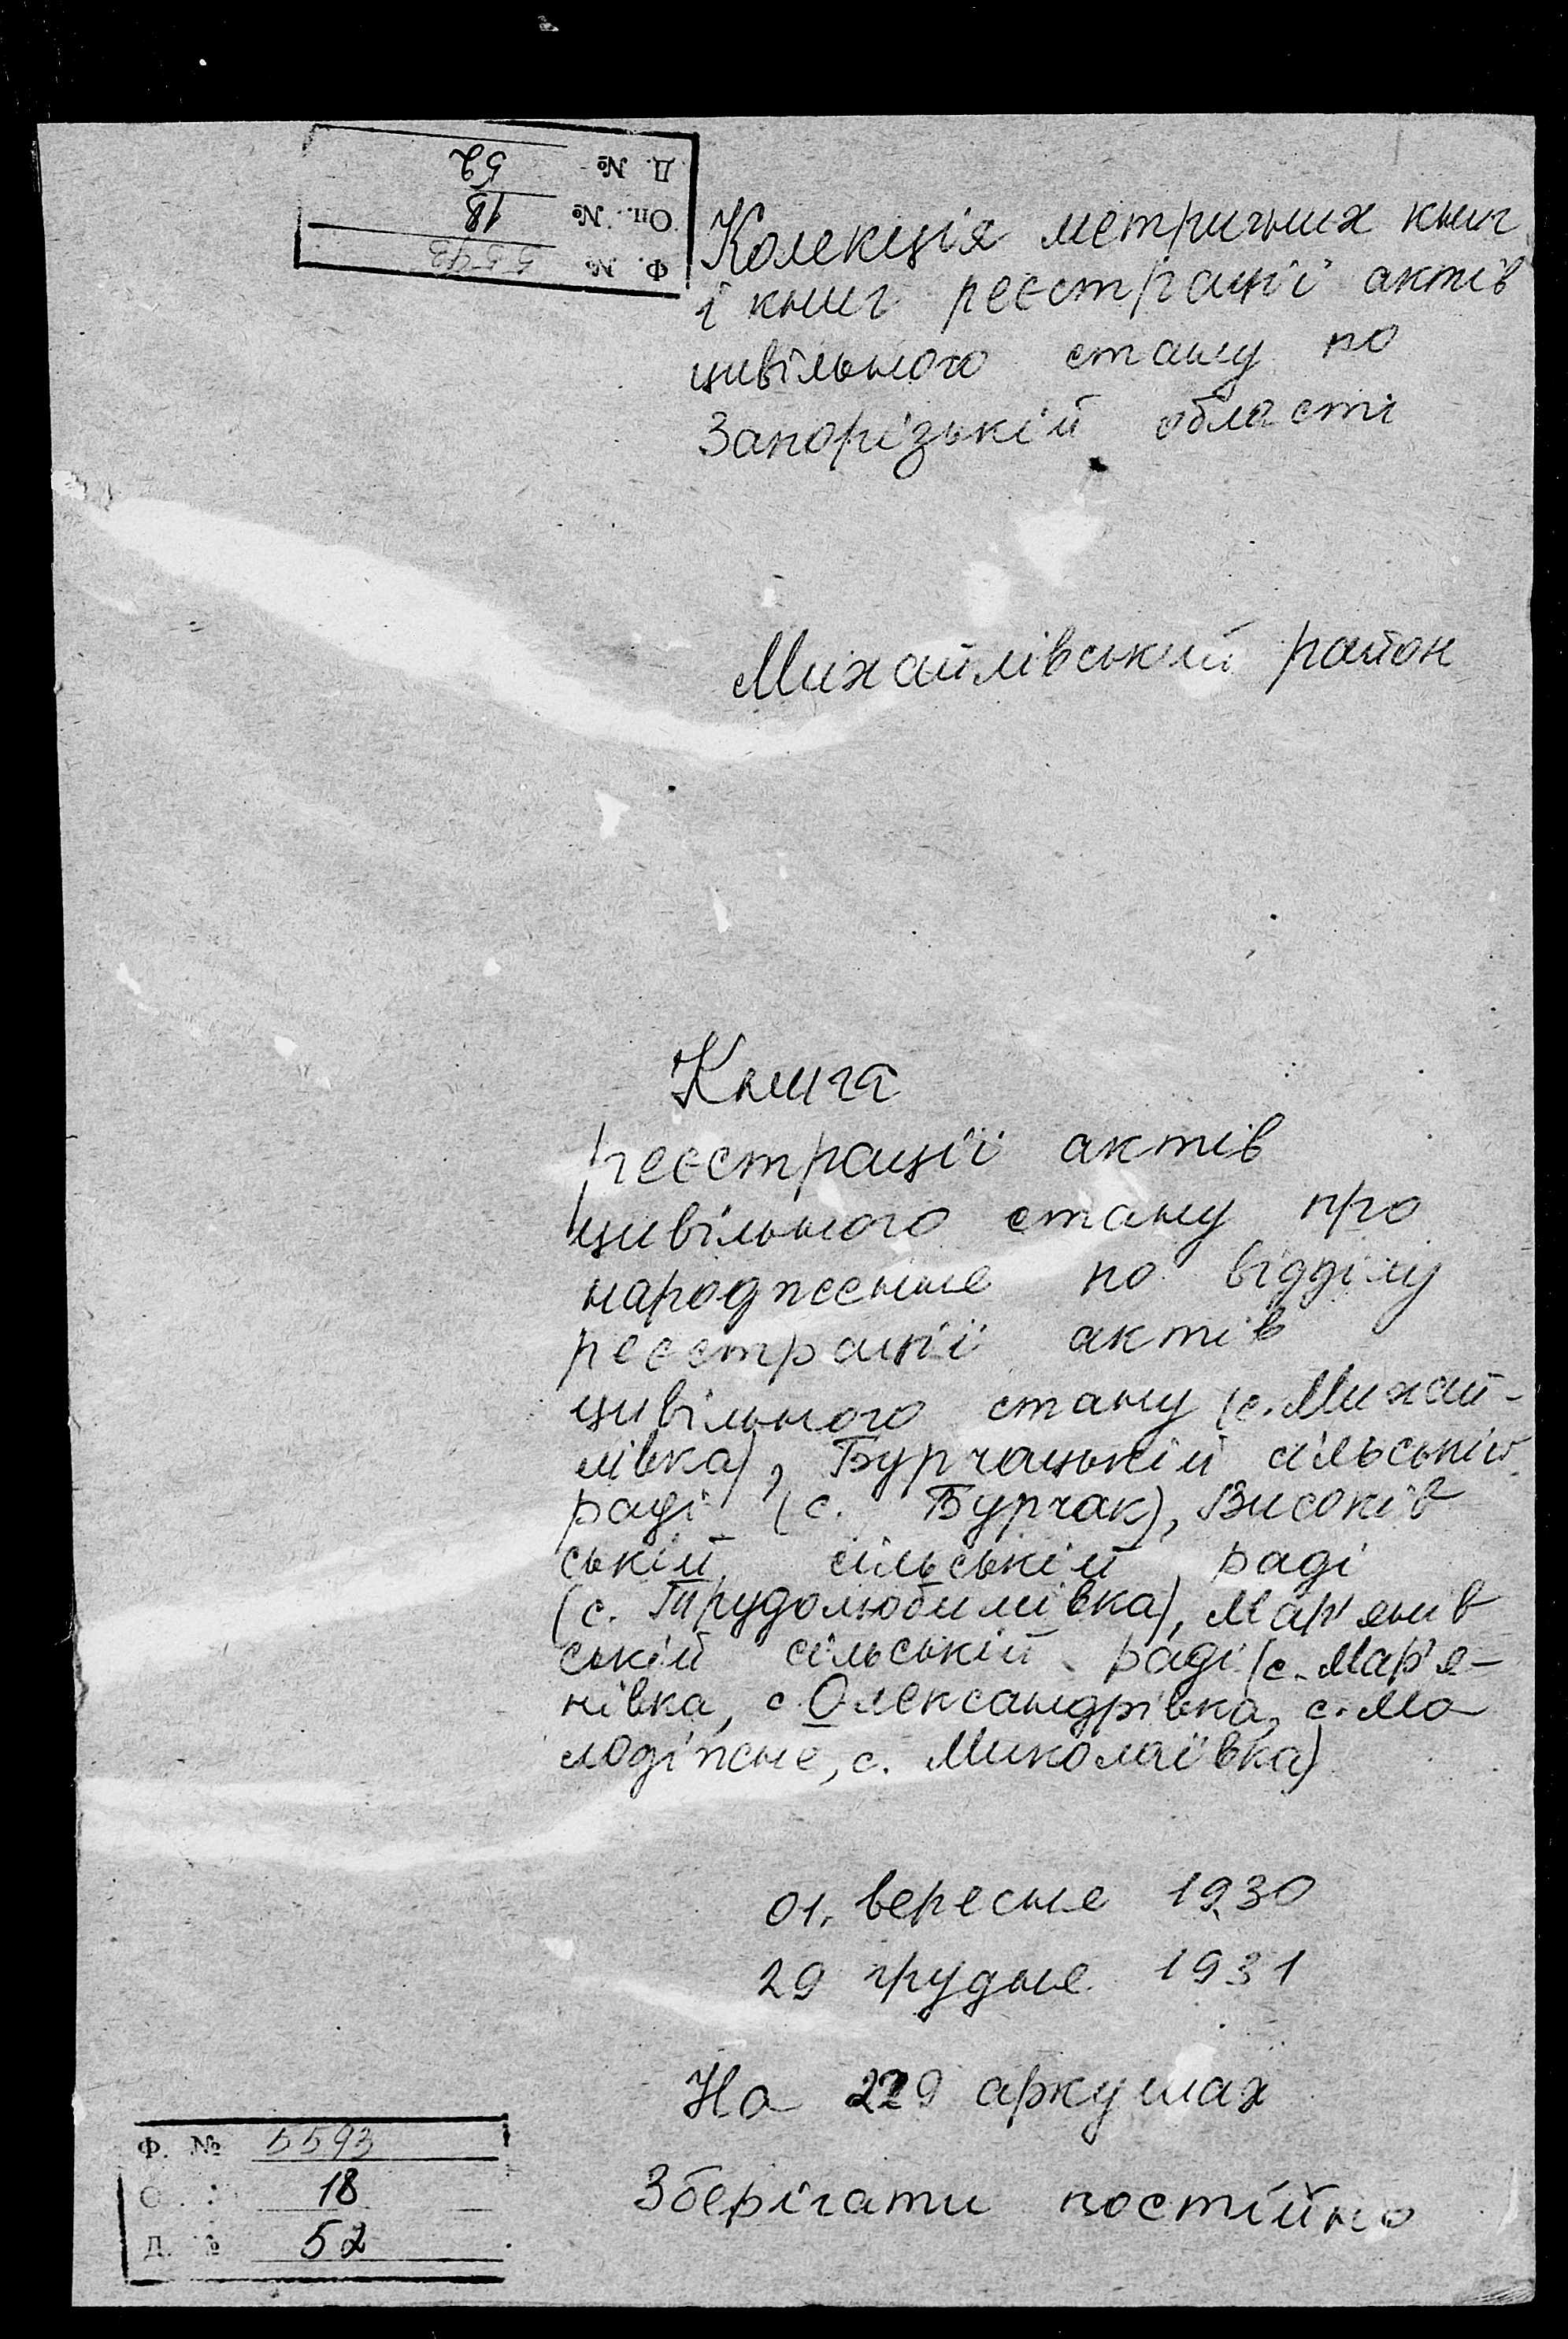 Д. № 52
Оп. № 18
Ф. № 5593
Колекція метричних книг
і книг реєстрації актів
цивільного стану по
Запорізькій області
Михайлівський район
Книга
реєстрації актів
цивільного стану про
народження по відділу
реєстрації актів
цивільного стану (с. Михай-
лівка), Бурчацькій сільській
раді (с. Бурчак), Високів
ській сільській раді
(с. Трудолюбимівка), Мар'янів
ській сільській раді (с. Мар'я-
нівка, с. Олександрівка, с. Мо
лодіжне, с. Миколаївка)
01. вересня 1930
29 грудня 1931
На 229 аркушах
Зберігати постійно
Ф. № 5593
О 18
Д. № 52